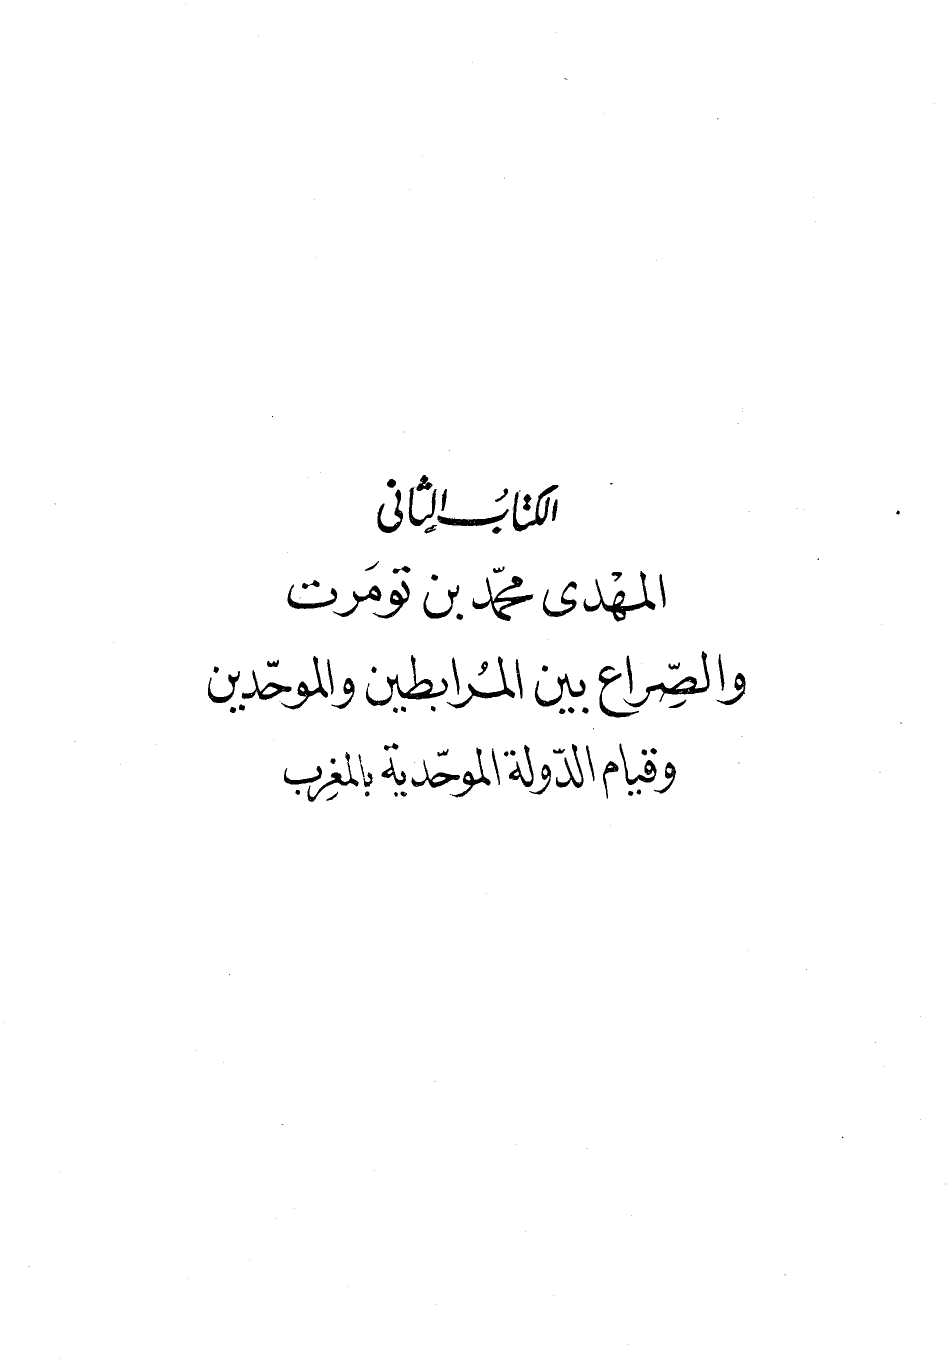 الكتابُ الثانى
المهْدى محمّد بن تومَرت
والصِّراع بين المُرابطين والموحّدين
وقيام الدّولة الموحّدية بالمغرِب